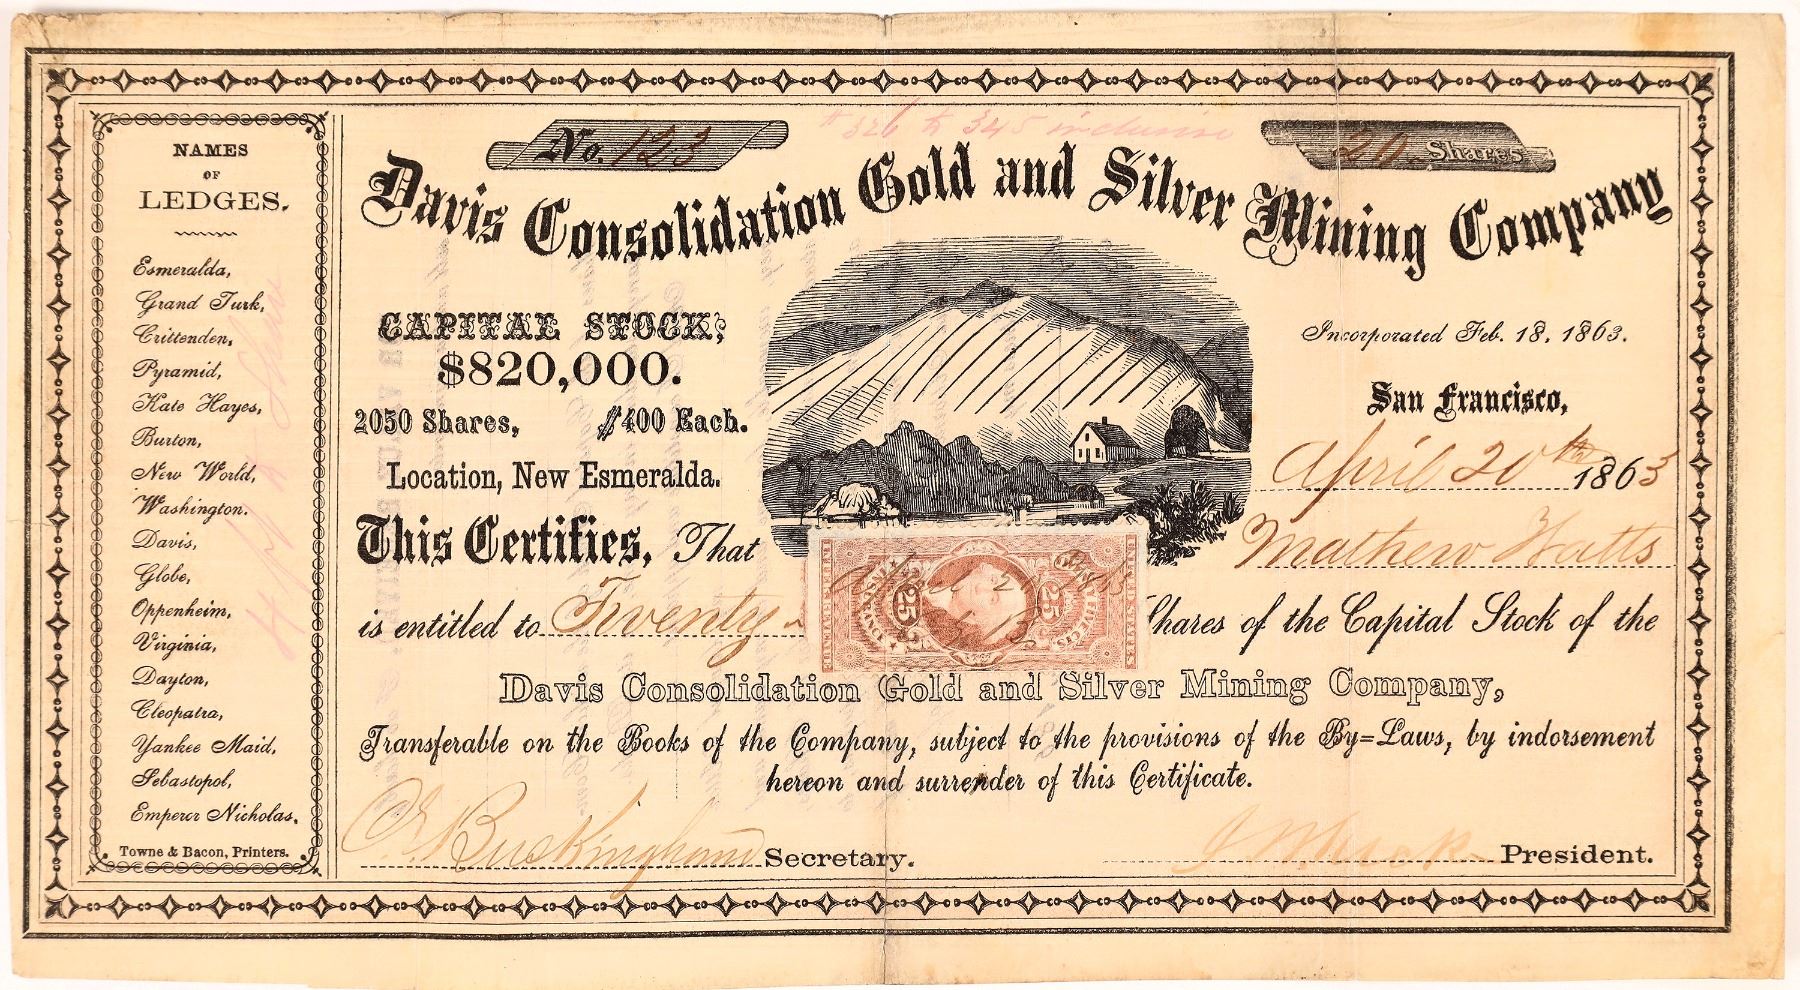 NAMES
OF
LEDGES.
Esmeralda,
Grand Turk,
Crittenden,
Pyramid,
Kate Hayes,
Burton,
New World,
Washington.
Davis,
Globe,
Oppenheim,
Virginia,
Dayton,
Cleopatra,
Yankee Maid,
Sebastopol,
Emperor Nicholas.
Towne & Bacon, Printers.
No. 123
# 326 to 345 inclusive
20. Shares
Davis Consolidation Gold and Silver Mining Company
CAPITAL STOCK,
$820,000.
2050 Shares, $400 Each.
Location, New Esmeralda.
Incorporated Feb. 18, 1863.
San Francisco,
April 20th 1863
This Certifies, That Mathew Watts
is entitled to Twenty Shares of the Capital Stock of the
April 20 1863
25 25
Davis Consolidation Gold and Silver Mining Company,
Transferable on the Books of the Company, subject to the provisions of the By=Laws, by indorsement
hereon and surrender of this Certificate.
Buckingham Secretary.
President.